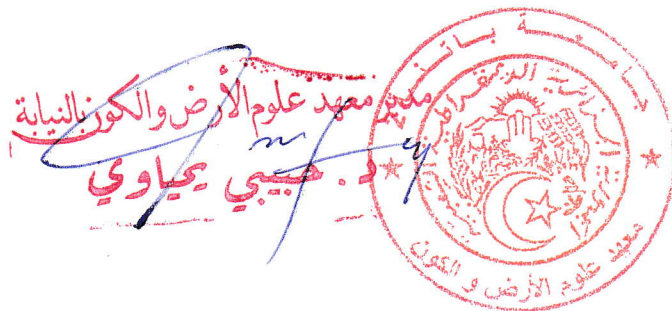 مدير معهد علوم الأرض والكون بالنيابة
د. حبيبي يحياوي
جامعة باتنة
الجمهورية الجزائرية الديمقراطية الشعبية
معهد علوم الأرض و الكون